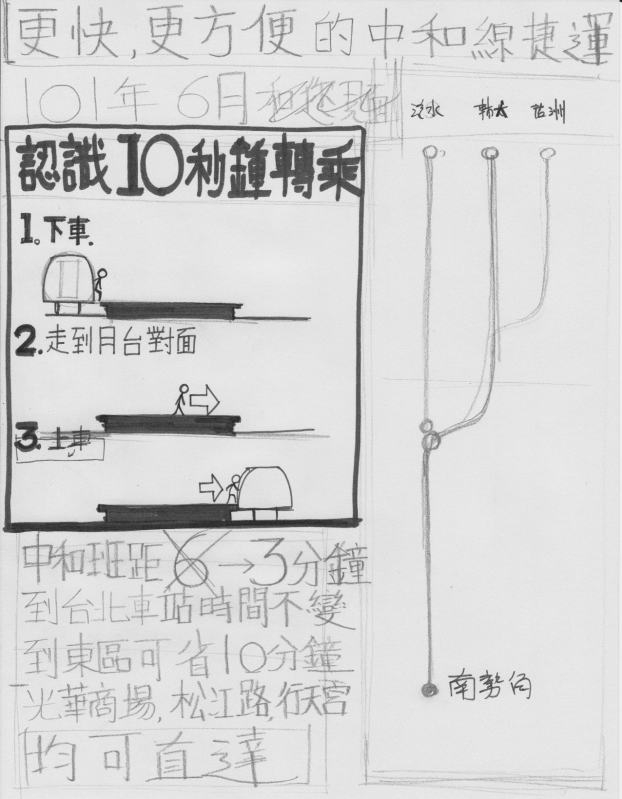 更快,更方便的中和線捷運
101年 6月和您見面
淡水 輔大 蘆洲
認識10秒鐘轉乘
1。下車.
2.走到月台對面
3.上車
南勢角
中和班距6→3分鐘
到台北車站時間不變
到東區可省10分鐘
光華商場,松江路,行天宮
均可直達